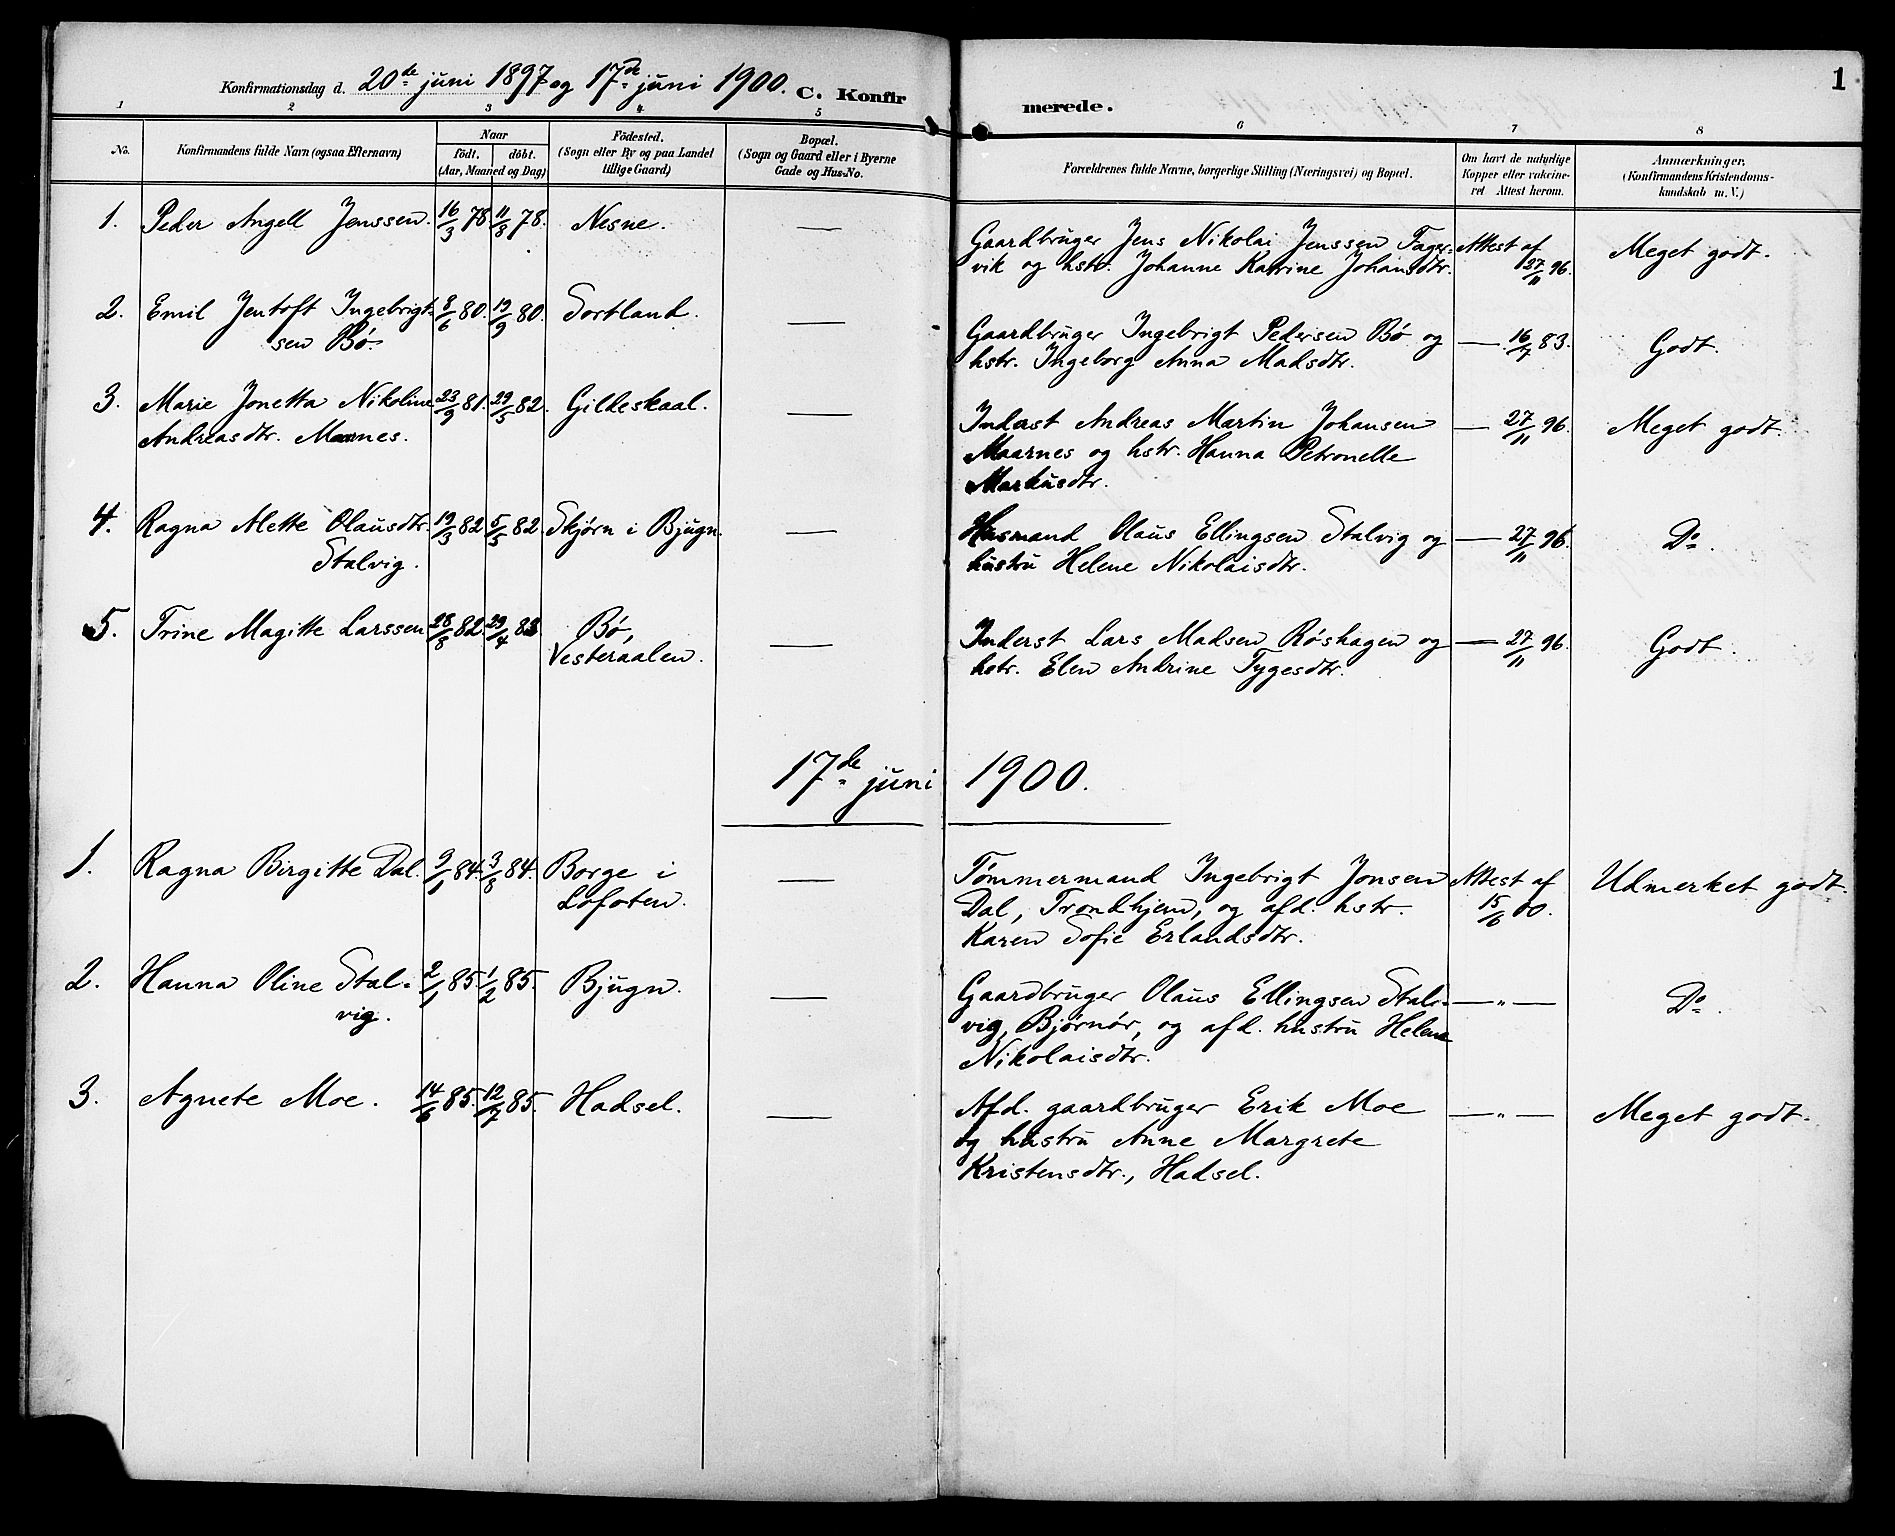 1
Konfirmationsdag d. 20de juni 1897 og 17de juni 1900. C. Konfir merede.
1 2 3 4 5 6 7 8
No.
Konfirmandens fulde Navn (ogsaa Efternavn)
Naar
födt. döbt.
(Aar, Maaned og Dag)
Födested.
(Sogn eller By og paa Landet
tillige Gaard)
Bopæl.
(Sogn og Gaard eller i Byerne
Gade og Hus-No.
Forældrenes fulde Navne, borgerlige Stilling (Næringsvei) og Bopæl.
Om havt de naturlige
Kopper eller vakcine-
ret Attest herom.
Anmærkninger.
(Konfirmandens Kristendoms-
kundskab m. V.)
1. Peder Angell Jenssen. 16/3 78 11/8 78. Nesne. —
Gaardbruger Jens Nikolai Jenssen Tager-
vik og hstr. Johanne Katrine Johansdtr.
Attest af
27/11 96.
Meget godt.
2. Emil Jentoft Ingebrigt-
sen Bø.
8/6 80. 19/9 80. Sortland. —
Gaardbruger Ingebrigt Pedersen Bø og
hstr. Ingeborg Anna Madsdtr.
— 16/7 83. Godt.
3. Marie Jonetta Nikoline
Andreasdtr. Maarnes.
23/9 81. 29/5 82. Gildeskaal. —
Inderst Andreas Martin Johansen
Maarnes og hstr. Hanna Petronelle
Markusdtr.
— 27/11 96. Meget godt.
4. Ragna Mette Olausdtr.
Stalvig.
19/3 82 5/5 82. Skjørn i Bjugn. —
Husmand Olaus Ellingsen Stalvig og
hustru Helene Nikolaisdtr.
— 27/11 96. Do.
5. Trine Magitte Larssen 28/8 82. 29/4 83 Bø,
Vesteraalen. —
Inderst Lars Madsen Røshagen og
hstr. Elen Andrine Tygesdtr.
— 27/11 96. Godt.
17de juni 1900.
1. Ragna Birgitte Dal. 9/1 84. 3/8 84. Borge i
Lofoten. —
Tømmermand Ingebrigt Jonsen
Dal, Trondhjem, og afd. hstr.
Karen Sofie Erlandsdtr.
Attest af
15/6 00.
Udmerket godt.
2. Hanna Oline Stal-
vig.
2/1 85. 1/2 85. Bjugn. —
Gaardbruger Olaus Ellingsen Stal-
vig, Bjørnør, og afd. hustru Helene
Nikolaisdtr.
— " — Do.
3. Agnete Moe. 14/6 85. 12/7 85. Hadsel. —
Afd. gaardbruger Erik Moe
og hustru Anne Margrete
Kristensdtr., Hadsel.
— " — Meget godt.